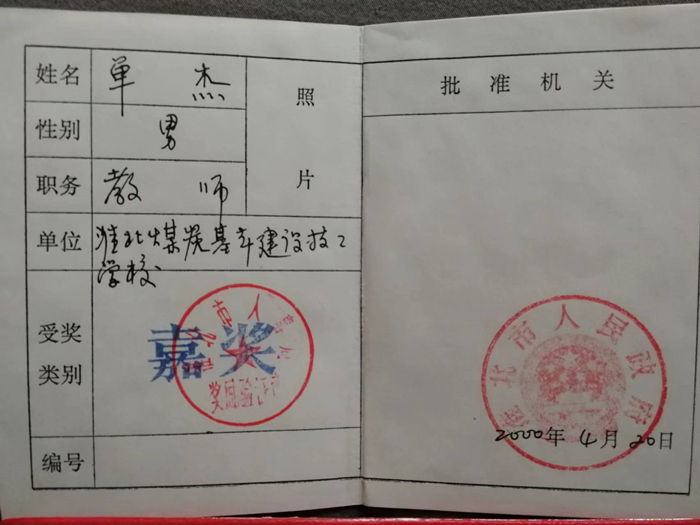 姓名 单 杰
性别 男
职务 教 师
照
片
单位 淮北煤炭基本建设技工
学校
受奖
类别
嘉奖
编号
批 准 机 关
淮北市人民政府
2000年 4月 20日